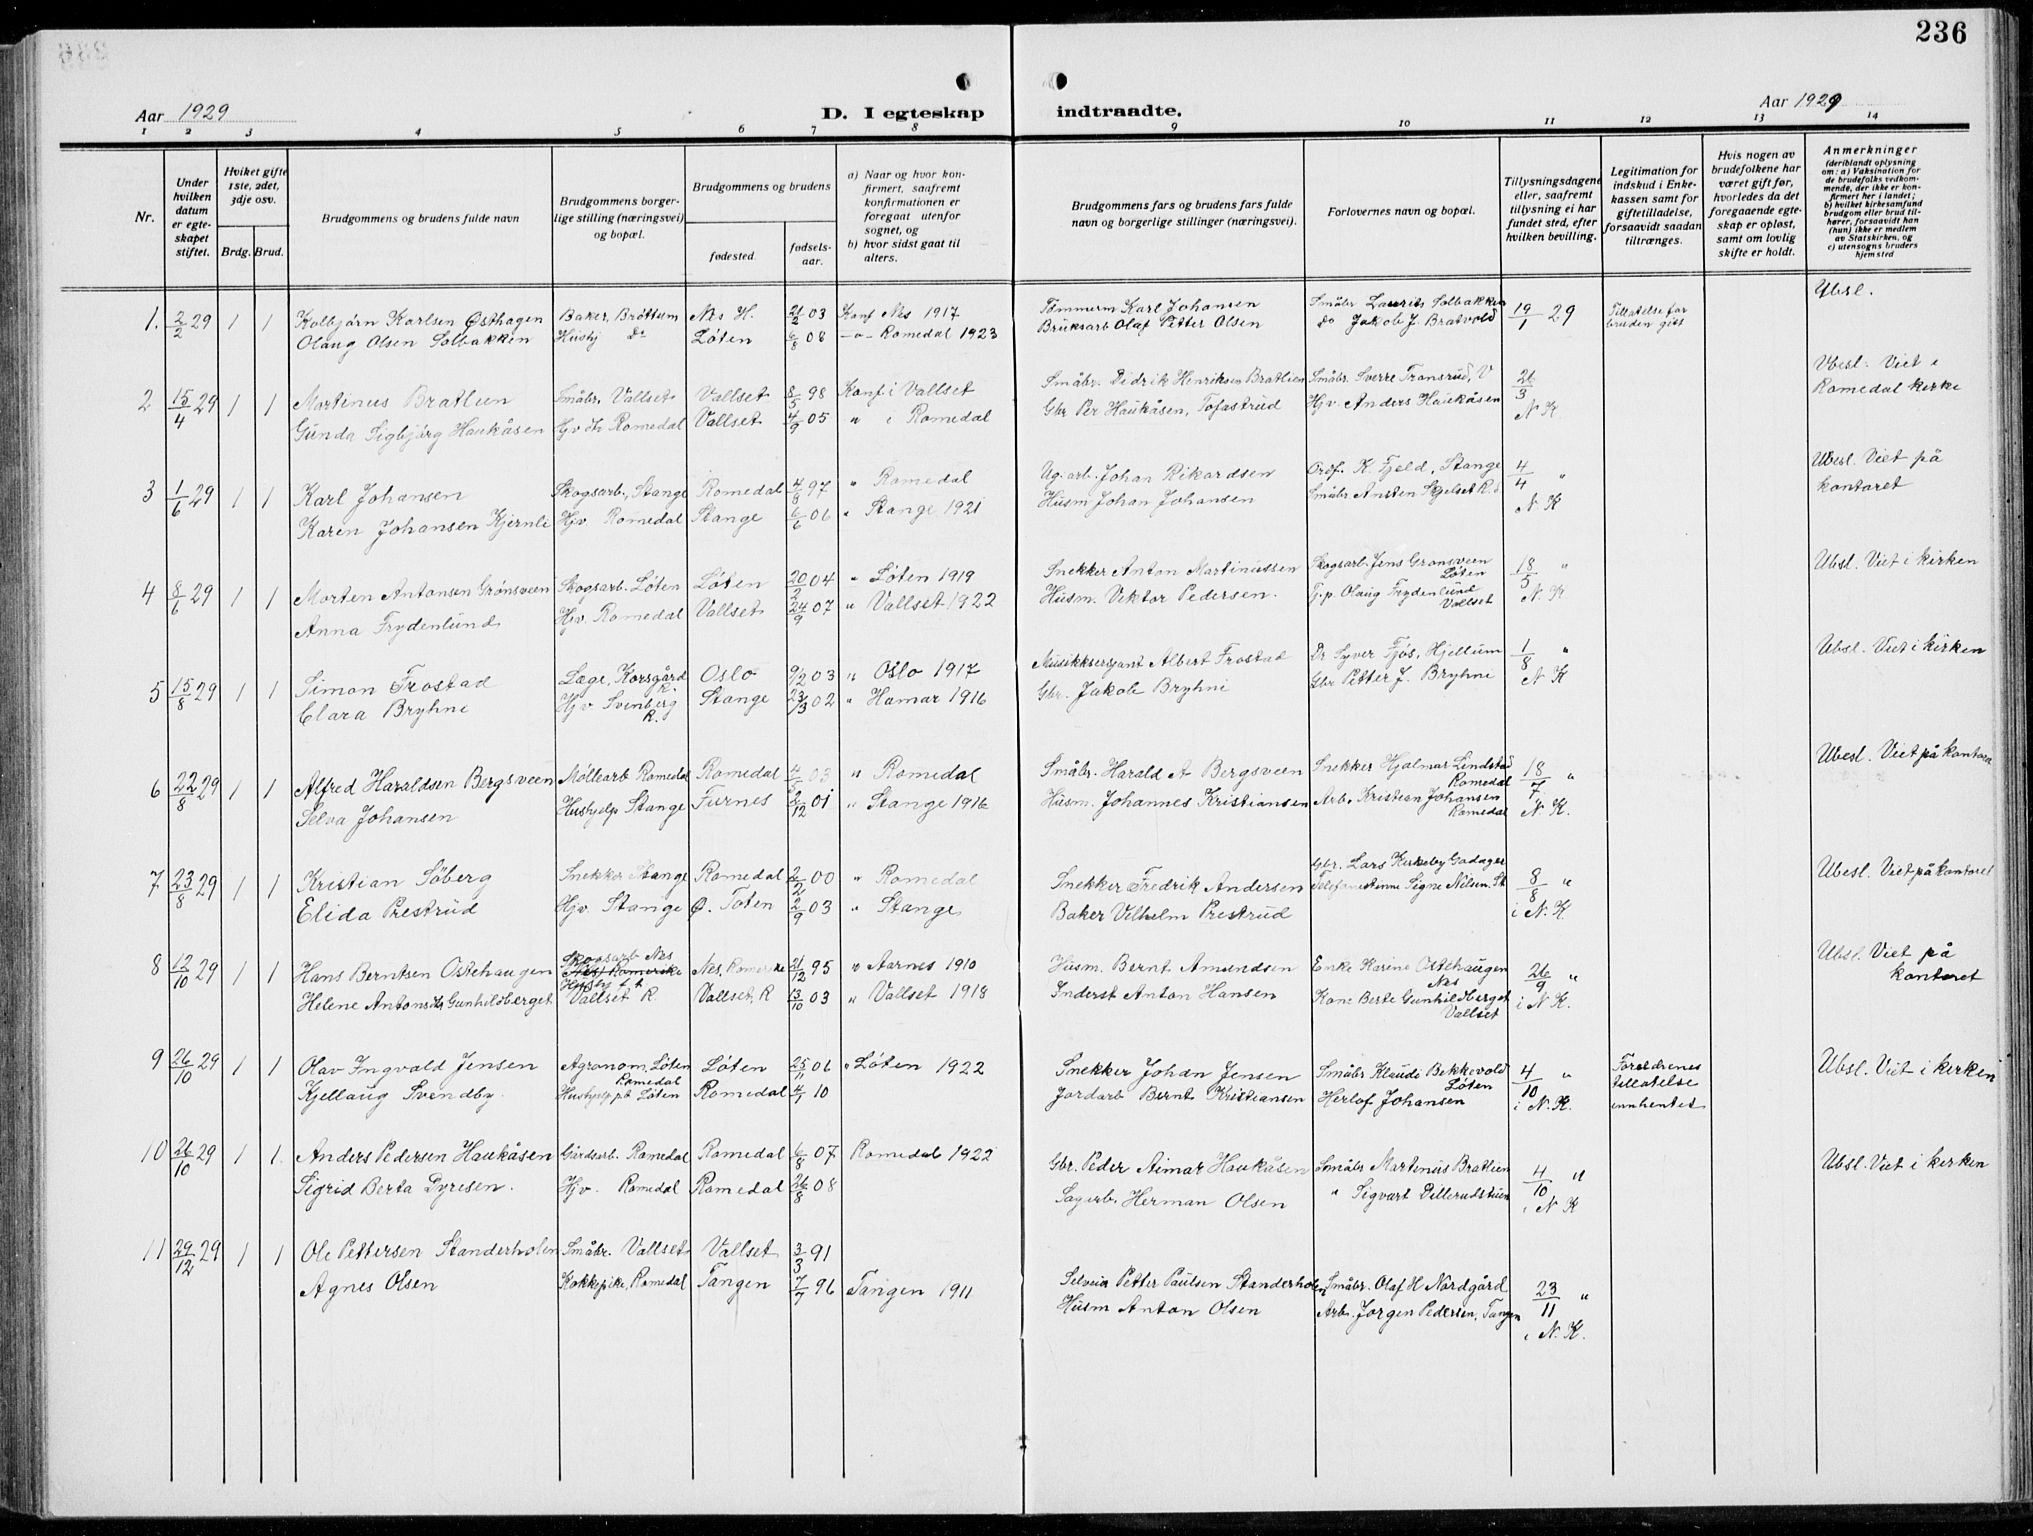 236
Aar 1929
D. I egteskap
indtraadte.
Aar 1929
1 2 3 4 5 6 7 8 9 10 11 12 13 14
Nr.
Under hvilken datum er egteskapet stiftet.
Hviket gifte 1ste, 2det, 3dje osv.
Brdg. Brud.
Brudgommens og brudens fulde navn
Brudgommens borgerlige stilling (næringsvei) og bopæl.
Brudgommens og brudens
fødested.
fødselsaar.
a) Naar og hvor konfirmert, saafremt konfirmationen er foregaat utenfor sognet, og
b) hvor sidst gaat til alters.
Brudgommens fars og brudens fars fulde navn og borgerlige stillinger (næringsvei).
Forlovernes navn og bopæl.
Tillysningsdagene eller, saafremt tillysning ei har fundet sted, efter hvilken bevilling.
Legitimation for indskud i Enkekassen samt for giftetilladelse, forsaavidt saadan tiltrænges.
Hvis nogen av brudefolkene har været gift før, hvorledes da det foregaaende egteskap er opløst, samt om lovlig skifte er holdt.
Anmerkninger
(deriblandt oplysning om: a) Vaksination for de brudefolks vedkommende, der ikke er konfirmert her i landet; b) hvilket kirkesamfund brudgom eller brud tilhører, forsaavidt han (hun) ikke er medlem av Statskirken, og c) utensogns bruders hjemsted
1. 2/2 29 1 1 Kolbjørn Karlsen Østhagen Baker, Brøttum Nes H. 21/2 03 Konf Nes 1917 Tømmerm Karl Johansen Småbr Laurits Solbakken 19/1 29 Tillatelse for bruden gitt Ubsl.
Olaug Olsen Solbakken Hushj do Løten 6/8 08 -"- Romedal 1923 Bruksarb Olaf Petter Olsen do Jakob J. Bratvold
2 15/4 29 1 1 Martinus Bratlien Småbr, Vallset Vallset 8/5 98 Konf i Vallset Småbr. Didrik Henriksen Bratlien Småbr. Sverre Transrud, V 26/3 Ubesl. Viet i Romedal kirke
Gunda Sigbjørg Haukåsen Romedal Vallset 4/9 05 " i Romedal Gbr Per Haukåsen, Tofastrud Hjv. Anders Haukåsen N K
3 1/6 29 1 1 Karl Johansen Skogsarb., Stange Romedal 4/8 97 " Romedal Johan Rikardsen K. Fjeld, Stange 4/4 " Ubesl. Viet på kontoret
Karen Johansen Kjernli Hjv. Romedal Stange 6/6 06 " Stange 1921 Husm Johan Johansen Småbr Ansten Skjelset N. K
4 8/6 29 1 1 Morten Antonsen Grønsveen Skogsarb. Løten Løten 20/2 04 " Løten 1919 Snekker Anton Martinussen Skogsarb Jens Grønsveen Løten 18/5 " Ubsl. Viet i kirken
Anna Frydenlund Hjv. Romedal Vallset 24/9 07 " Vallset 1922 Husm. Viktor Pedersen. Olaug Frydenlund Vallset N. K
5 15/8 29 1 1 Simon Frostad Læge, Korsgård R. Oslo 9/2 03 " Oslo 1917 Musikksersjant Albert Frostad Dr Syver Fjøs, Hjellum 1/8 " Ubsl. Viet i kirken
Clara Bryhni Hjv Svenberg R. Stange 23/3 02 " Hamar 1916 Gbr. Jakob Bryhni Gbr Petter J. Bryhni N K
6 22/8 29 1 1 Alfred Haraldsen Bergsveen Møllearb Romedal Romedal 03 " Romedal Småbr. Harald A Bergsveen Snekker Hjalmar Lindstad Romedal 18/7 " Ubesl. Viet på kontoret
Selva Johansen Hushjelp Stange Furnes 2/12 01 " Stange 1916 Husm. Johannes Kristiansen Arb. Kristian Johansen Romedal N. K.
7 23/8 29 1 1 Kristian Søberg Snekker Stange Romedal 2/2 00 " Romedal Snekker Fredrik Andersen Gbr. Lars Kirkeby Gadager 8/8 " Ubesl. Viet på kontoret
Elida Prestrud Hjv. Stange Ø. Toten 2/9 03 " Stange Baker Vilhelm Prestrud Telefonistinne Signe Nilsen. St i N. K
8 12/10 29 1 1 Hans Berntsen Ostehaugen Skogsarb Nes Nes, Romerike 21/12 95 " Aarnes 1910 Husm. Bernt Amundsen Enke Karine Ostehaugen Nes 26/9 " Ubsl. Viet på kontoret
Helene Antonsdtr Gunhildberget Vallset R Vallset, R 13/10 03 " Vallset 1918 Inderst Anton Hansen Kone Berte Gunhildberget Vallset i N K.
9 26/10 29 1 1 Olav Ingvald Jensen Agronom, Løten Løten 25/11 06 " Løten 1922 Snekker Johan Jensen Småbr Klaude Bekkevold Løten 4/10 " Foreldrenes tillatelse innhentet Ubsl. Viet i kirken
Kjellaug Svendby Romedal Hushjelp på Løten Romedal 4/1 10 Jordarb Bernt Kristiansen Herlof Johansen i N. K.
10 26/10 29 1 1. Anders Pedersen Haukåsen Gårdsarb. Romedal Romedal 6/8 07 Romedal 1922 Gbr. Peder Aimar Haukåsen Småbr Martinus Bratlien 4/10 " Ubsl. Viet i kirken
Sigrid Berta Dyresen. Hjv. Romedal Romedal 26/8 08 Sagarb. Herman Olsen " Sigvart Dillerudstuen i N K
11 29/12 29 1 1 Ole Pettersen Standerholen Småbr. Vallset Vallset 3/3 91
Agnes Olsen Kokkepike, Romedal Tangen 7/7 96 Tangen 1911 Selveier Petter Paulsen Standerholen Småbr. Olaf H Nordgård 23/11 "
Husm Anton Olsen Arb. Jørgen Pedersen, Tangen i N. K.